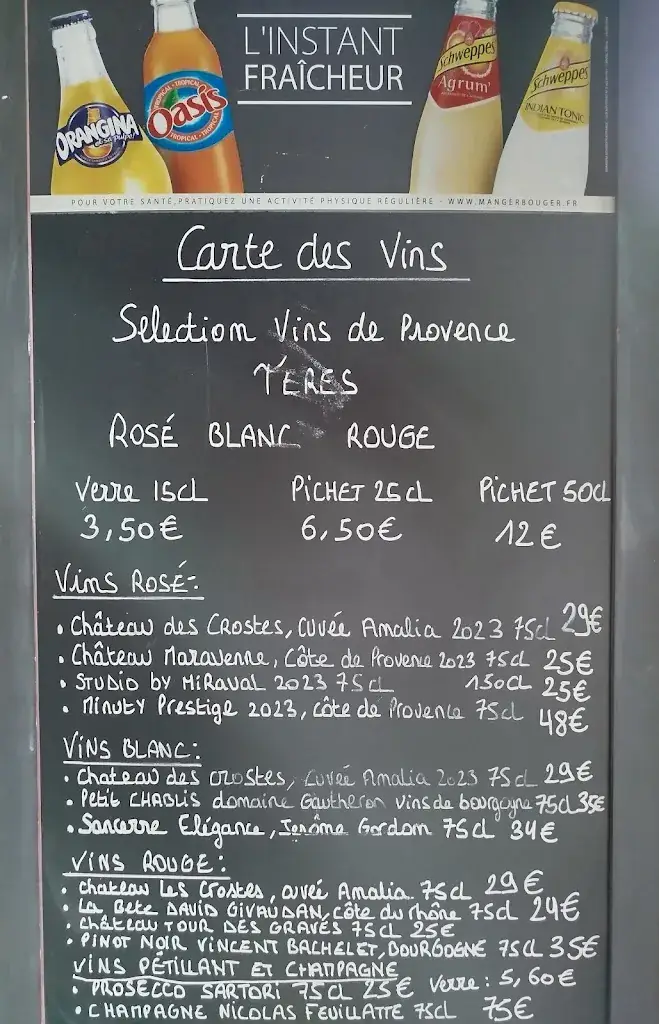 L'INSTANT
FRAÎCHEUR
ORANGINA
TROPICAL
Oasis
TROPICAL
Schweppes
Agrum'
Schweppes
INDIAN TONIC
POUR VOTRE SANTÉ, PRATIQUEZ UNE ACTIVITÉ PHYSIQUE RÉGULIÈRE - WWW.MANGERBOUGER.FR
Carte des Vins
Selection Vins de Provence
TERES
ROSÉ BLANC ROUGE
Verre 15cl PICHET 25cl PICHET 50cl
3,50€ 6,50€ 12€
Vins ROSÉ:
• Château des CROSTES, CUVÉE Amalia 2023 75cl 29€
• Château Maravenne, Côte de Provence 2023 75cl 25€
• STUDIO by MIRAVAL 2023 75cl 150cl 25€
• MINUTY Prestige 2023, côte de Provence 75cl 48€
VINS BLANC:
• Chateau des crostes, Cuveé Amalia 2023 75cl 29€
• Petit CHABLIS domaine Gautheron vins de bourgogne 75cl 35€
• Sancerre Elégance, Jerôme Gordom 75cl 34€
VINS ROUGE:
• chateau Les Crostes, cuveé Amalia. 75cl 29€
• La Bete DAVID GIVAUDAN, côte du rhône 75cl 24€
• château TOUR DES GRAVES 75cl 25€
• PINOT NOIR VINCENT BACHELET, BOURGOGNE 75cl 35€
VINS PÉTILLANT ET CHAMPAGNE
• PROSECCO SARTORI 75cl 25€ Verre: 5,60€
• CHAMPAGNE NICOLAS FEUILLATTE 75cl 75€